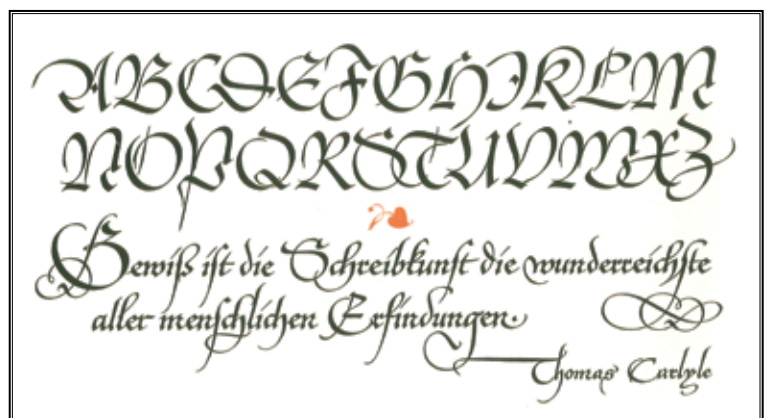 ABCDEFGHIKLM
NOPQRSTUVWXZ
Gewiß ist die Schreibkunst die wunderreichste
aller menschlichen Erfindungen.
Thomas Carlyle